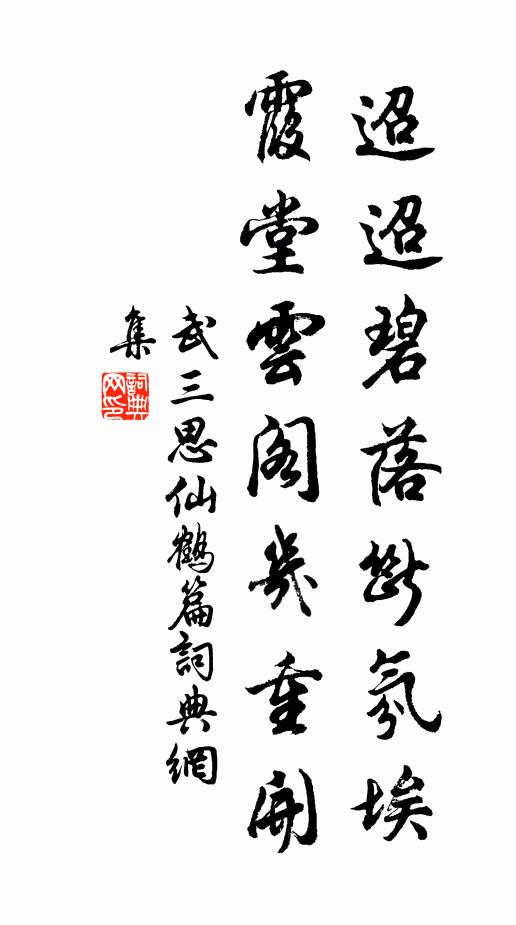 迢迢碧落斷氛埃
霞堂雲閣幾重開
武三思仙鶴篇詞典網
集
詞典網印